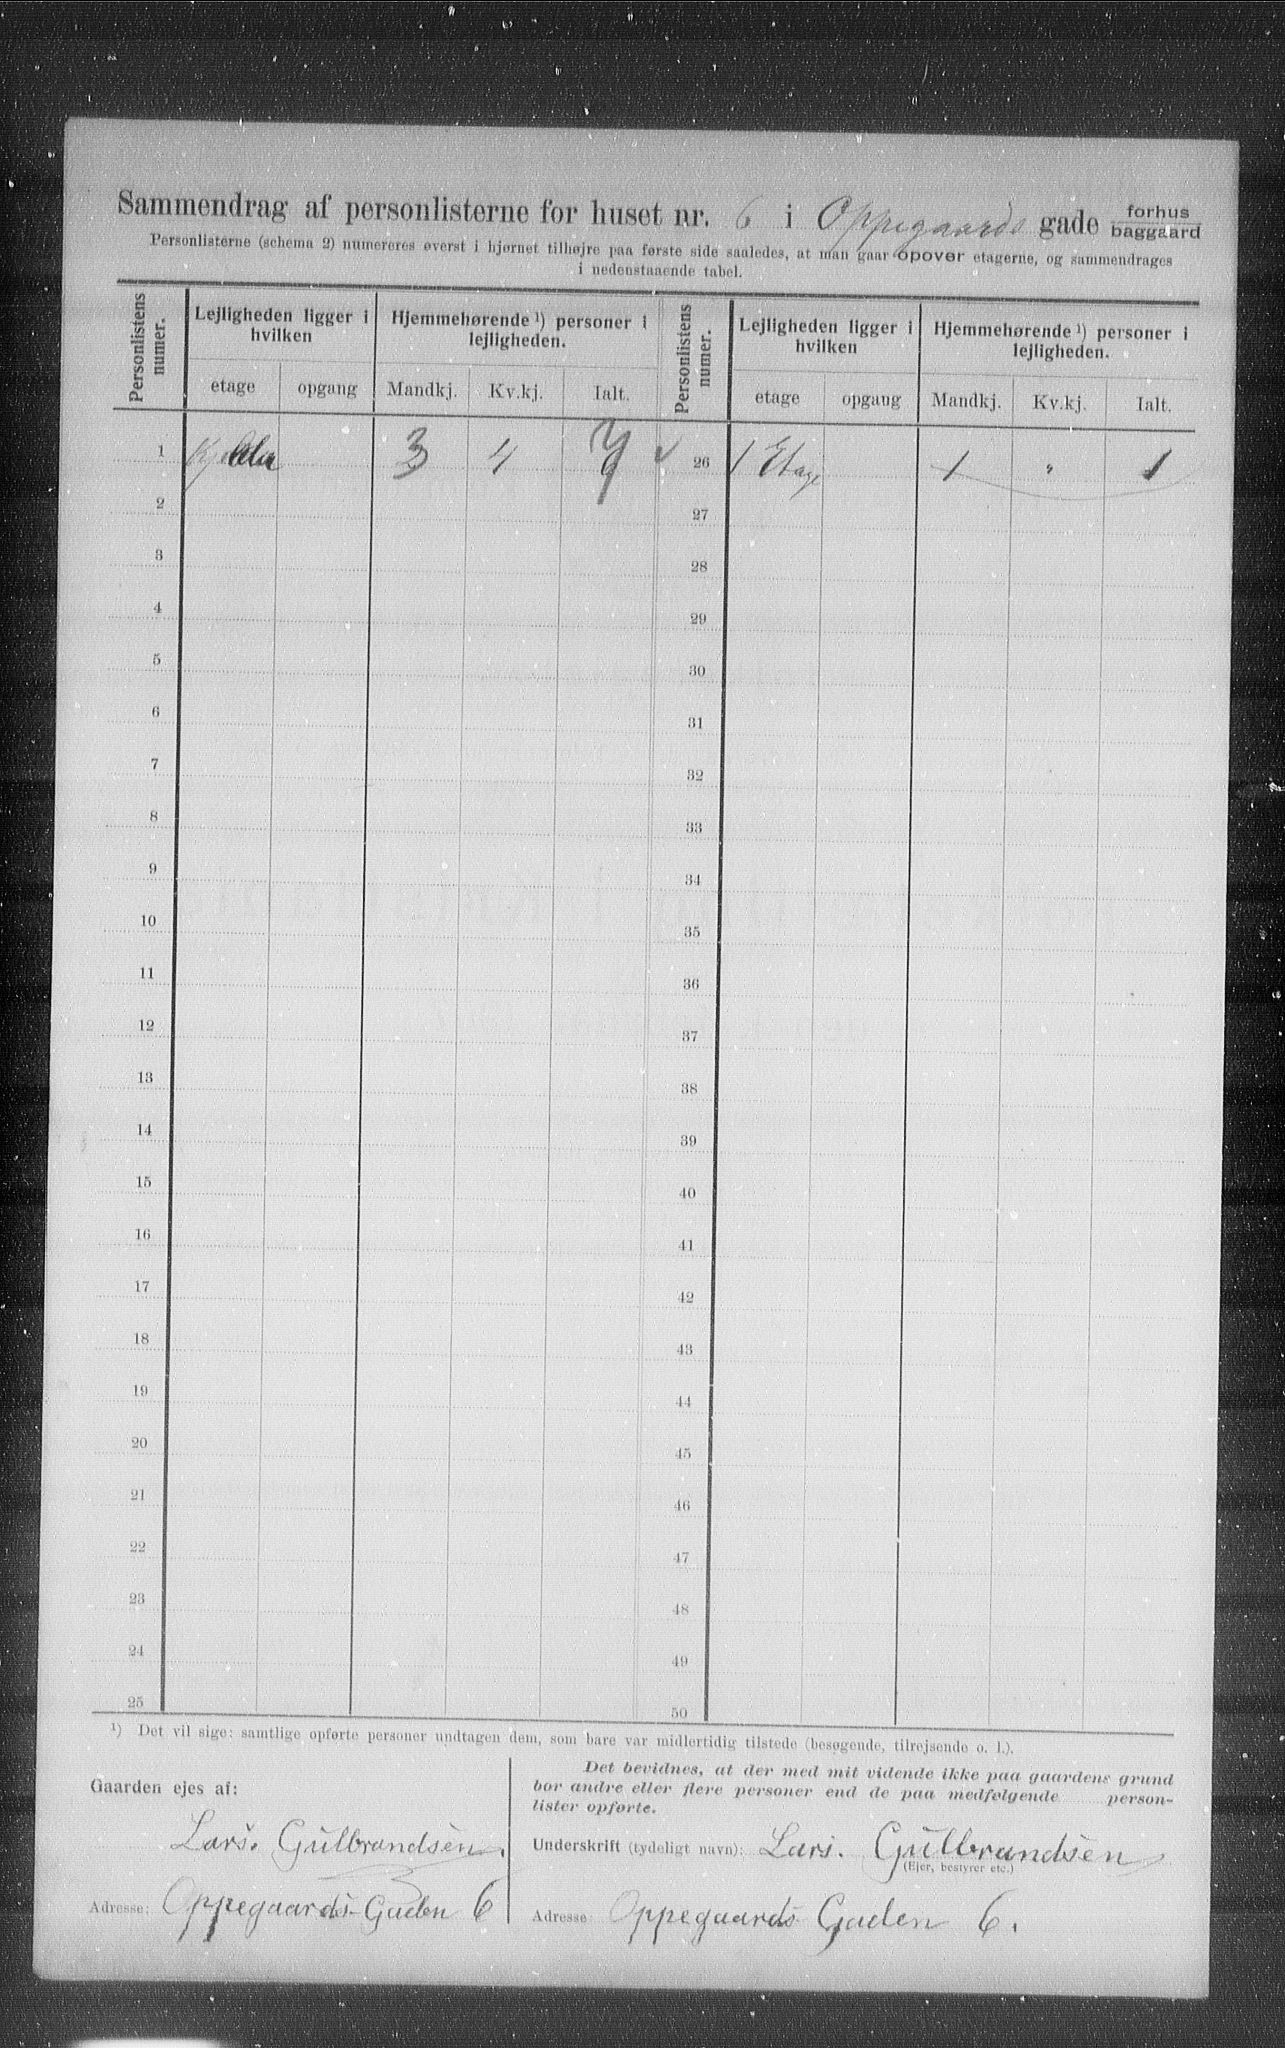 Sammendrag af personlisterne for huset nr. 6 i Oppegaards gade forhus baggaard
Personlisterne (schema 2) numereres øverst i hjørnet tilhøjre paa første side saaledes, at man gaar opover etagerne, og sammendrages
i nedenstaaende tabel.
Personlistens numer. Lejligheden ligger i hvilken Hjemmehørende ¹) personer i lejligheden. Personlistens numer. Lejligheden ligger i hvilken Hjemmehørende ¹) personer i lejligheden.
etage opgang Mandkj. Kv.kj. Ialt. etage opgang Mandkj. Kv.kj. Ialt.
1 3 4 7 26 1 Etage 1 " 1
2 27
3 28
4 29
5 30
6 31
7 32
8 33
9 34
10 35
11 36
12 37
13 38
14 39
15 40
16 41
17 42
18 43
19 44
20 45
21 46
22 47
23 48
24 49
25 50
¹) Det vil sige: samtlige opførte personer undtagen dem, som bare var midlertidig tilstede (besøgende, tilrejsende o. l.).
Gaarden ejes af:
Lars. Gulbrandsen.
Adresse: Oppegaards Gaden 6
Det bevidnes, at der med mit vidende ikke paa gaardens grund
bor andre eller flere personer end de paa medfølgende person-
lister opførte.
Underskrift (tydeligt navn): Lars. Gulbrandsen
(Ejer, bestyrer etc.)
Adresse: Oppegaards Gaden 6.